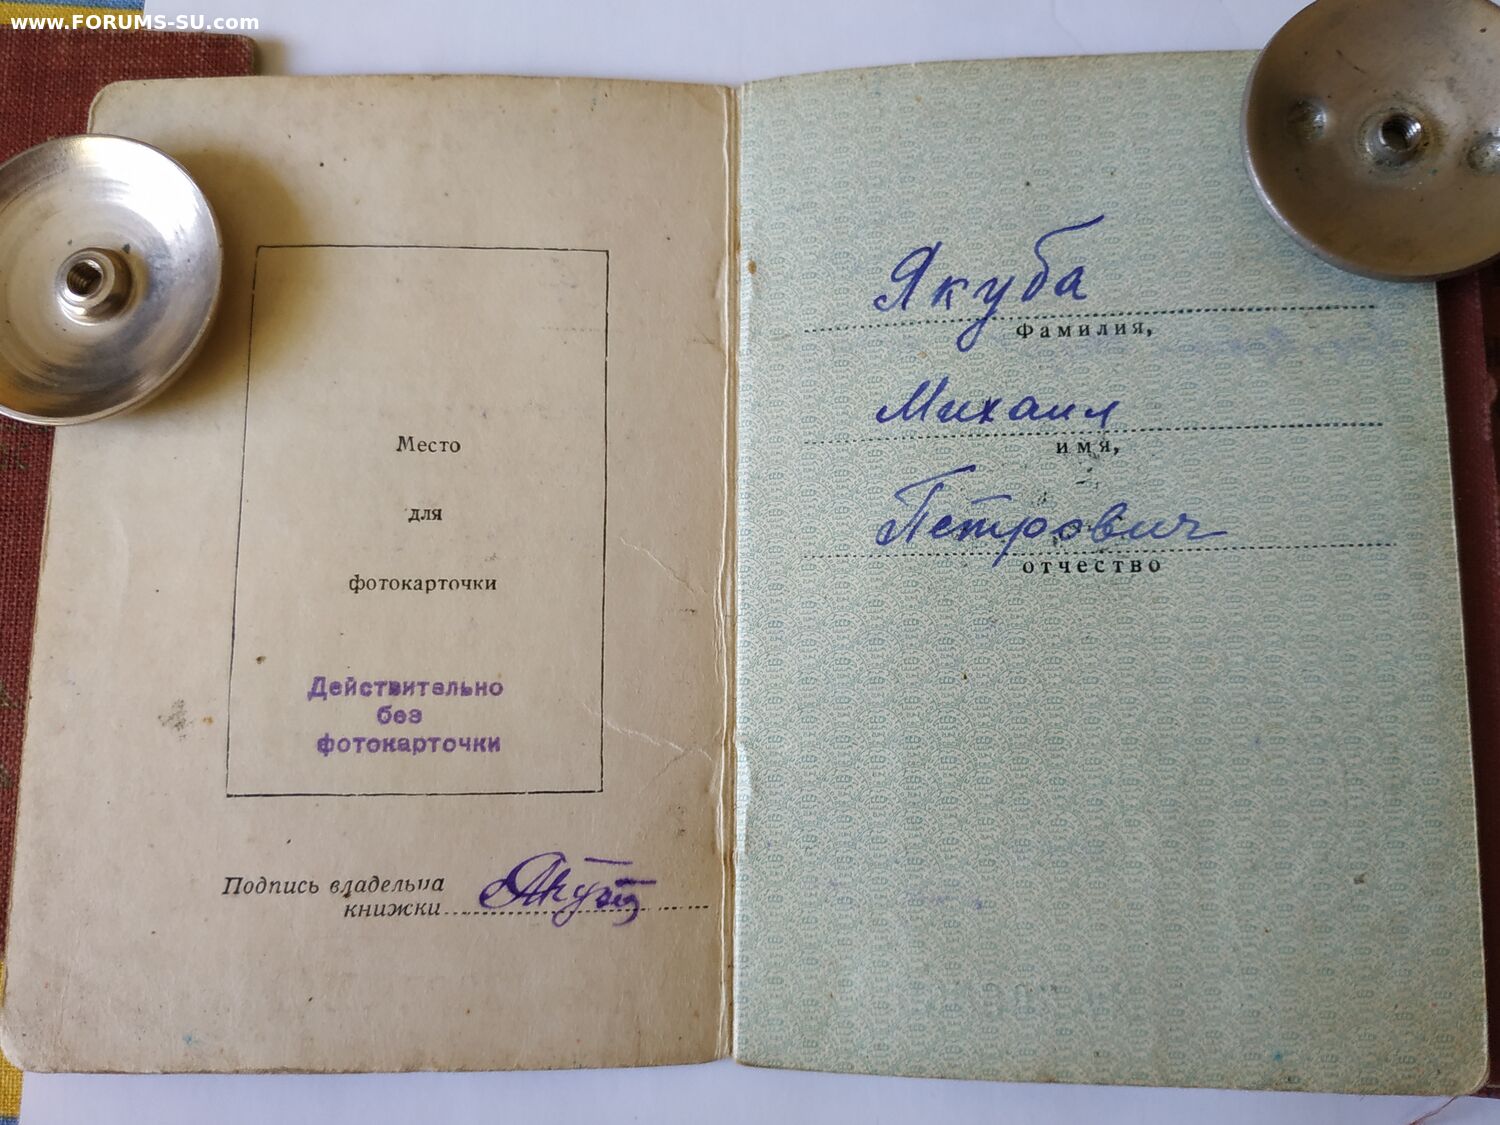 www.FORUMS-SU.com
Место
для
фотокарточки
Действительно
без
фотокарточки
Подпись владельца
книжки
Якуба
фамилия,
Михаил
имя,
Петрович
отчество